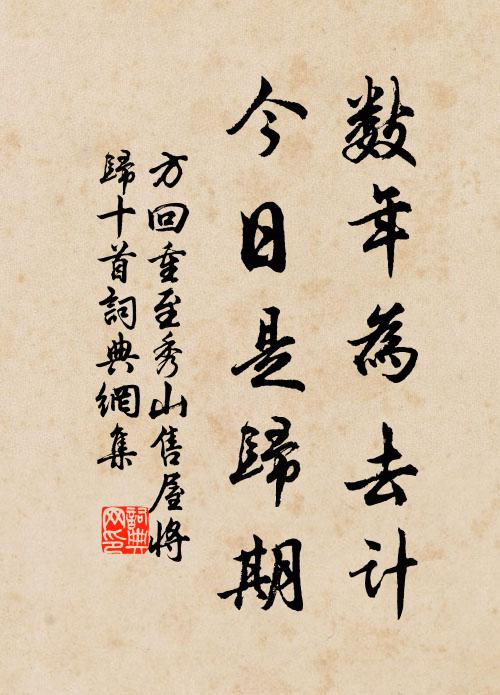 數年為去計
今日是歸期
方回重至秀山售屋將
歸十首詞典網集
詞典
网印